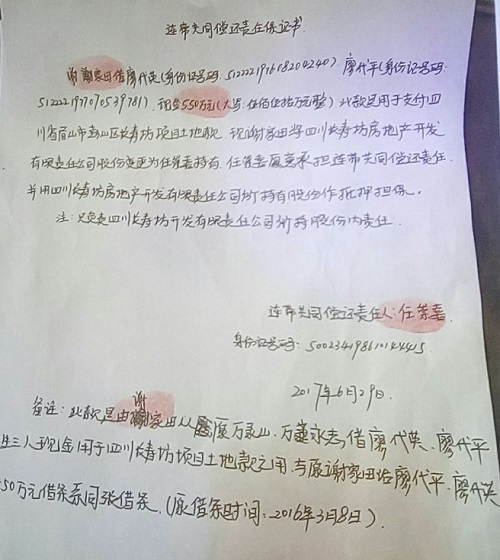 连带共同偿还责任保证书
谢家田借廖代英(身份证号码:512222196082042402)廖代平(身份证号码:
512222197707053978)现金550万元(大写:伍佰伍拾万元整)此款是用于支付四
川省眉山市彭山区长寿坊项目土地款。现谢家田将四川长寿坊房地产开发
有限责任公司股份变更为任崇喜持有.任崇喜愿意承担连带共同偿还责任.
并用四川长寿坊房地产开发有限责任公司所持有股份作抵押担保。
注:只负责四川长寿坊开发有限责任公司所持股份内责任.
连带共同偿还责任人:任崇喜.
身份证号码:
2017年6月29日.
备注:此款是由谢家田从重庆万灵山.万盛永志借廖代英、廖代平
三人现金用于四川长寿坊项目土地款之用.与原谢家田给廖代平、廖代英
50万元借条系同张借条.(原借条时间:2016年3月8日).